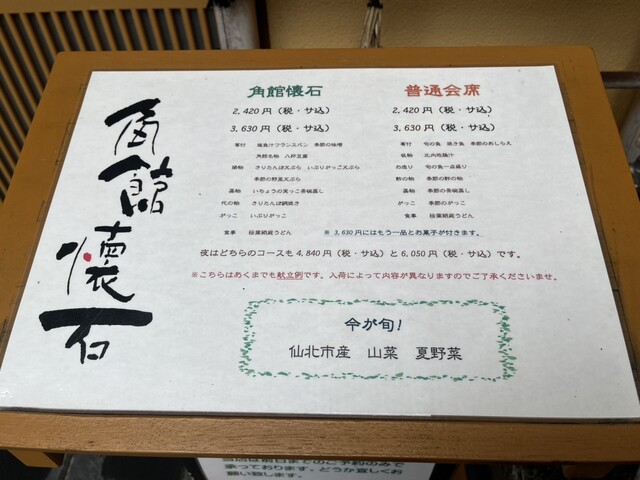 角館懐石
角館懐石
2,420円（税・サ込）
3,630円（税・サ込）
季節の味噌
角館名物 八杯豆腐
きりたんぽ天ぷら いぶりがっこ天ぷら
季節の野菜天ぷら
蒸物 いちょうの実っこ茶碗蒸し
代の物 きりたんぽ鍋焼き
がっこ いぶりがっこ
食事 稲庭絹庭うどん
普通会席
2,420円（税・サ込）
3,630円（税・サ込）
旬の魚 焼き魚 季節のあしらえ
比内地鶏汁
お造り 旬の魚一点盛り
酢の物 季節の酢の物
蒸物 季節の茶碗蒸し
がっこ 季節のがっこ
食事 稲庭絹庭うどん
※ 3,630円にはもう一品とお菓子が付きます。
夜はどちらのコースも4,840円（税・サ込）と6,050円（税・サ込）です。
※こちらはあくまでも献立例です。入荷によって内容が異なりますのでご了承くださいませ。
今が旬!
仙北市産 山菜 夏野菜
当店は前日までのご予約のみで
承っております。どうか宜しくお
願い致します。